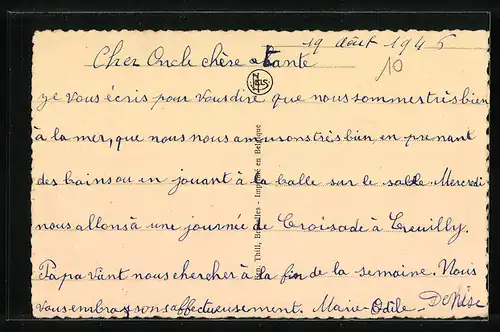 19 août 1946
10
Cher Oncle chère tante
je vous écris pour vous dire que nous sommes très bien
à la mer, que nous nous amusons très bien, en prenant
des bains ou en jouant à la balle sur le sable. Mercredi
nous allons à une journée de Croisade à Creuilly.
Papa vient nous chercher à la fin de la semaine. Nous
vous embrassons affectueusement. Marie Odile - Denise
Thill, Bruxelles - Imprimé en Belgique